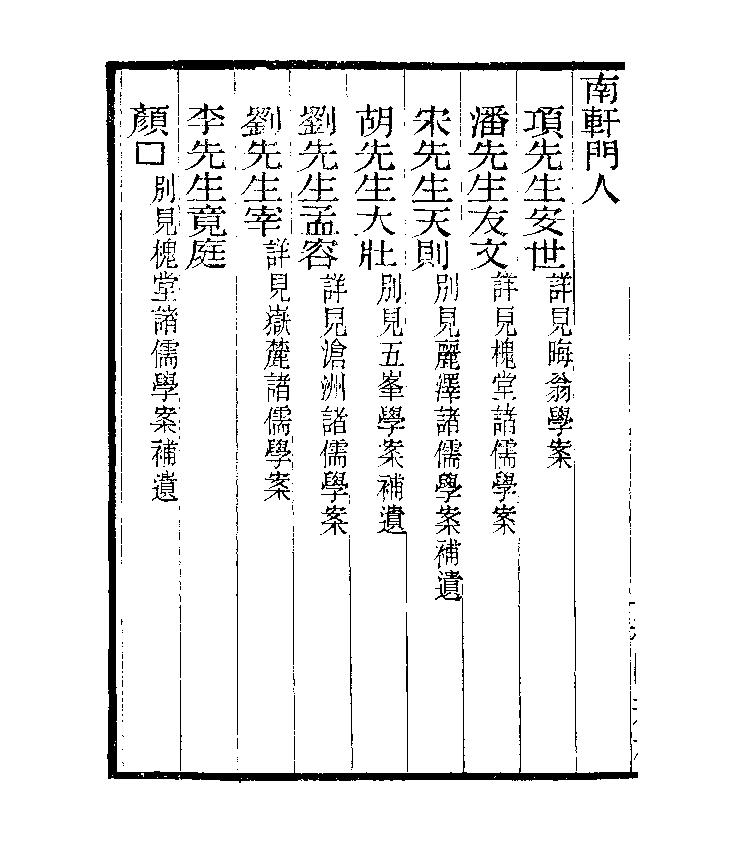 南軒門人
項先生安世詳見晦翁學案
潘先生友文詳見槐堂諸儒學案
宋先生天則別見麗澤諸儒學案補遺
胡先生大壯別見五峯學案補遺
劉先生孟容詳見滄洲諸儒學案
劉先生宰詳見嶽麓諸儒學案
李先生竟庭
顏□別見槐堂諸儒學案補遺